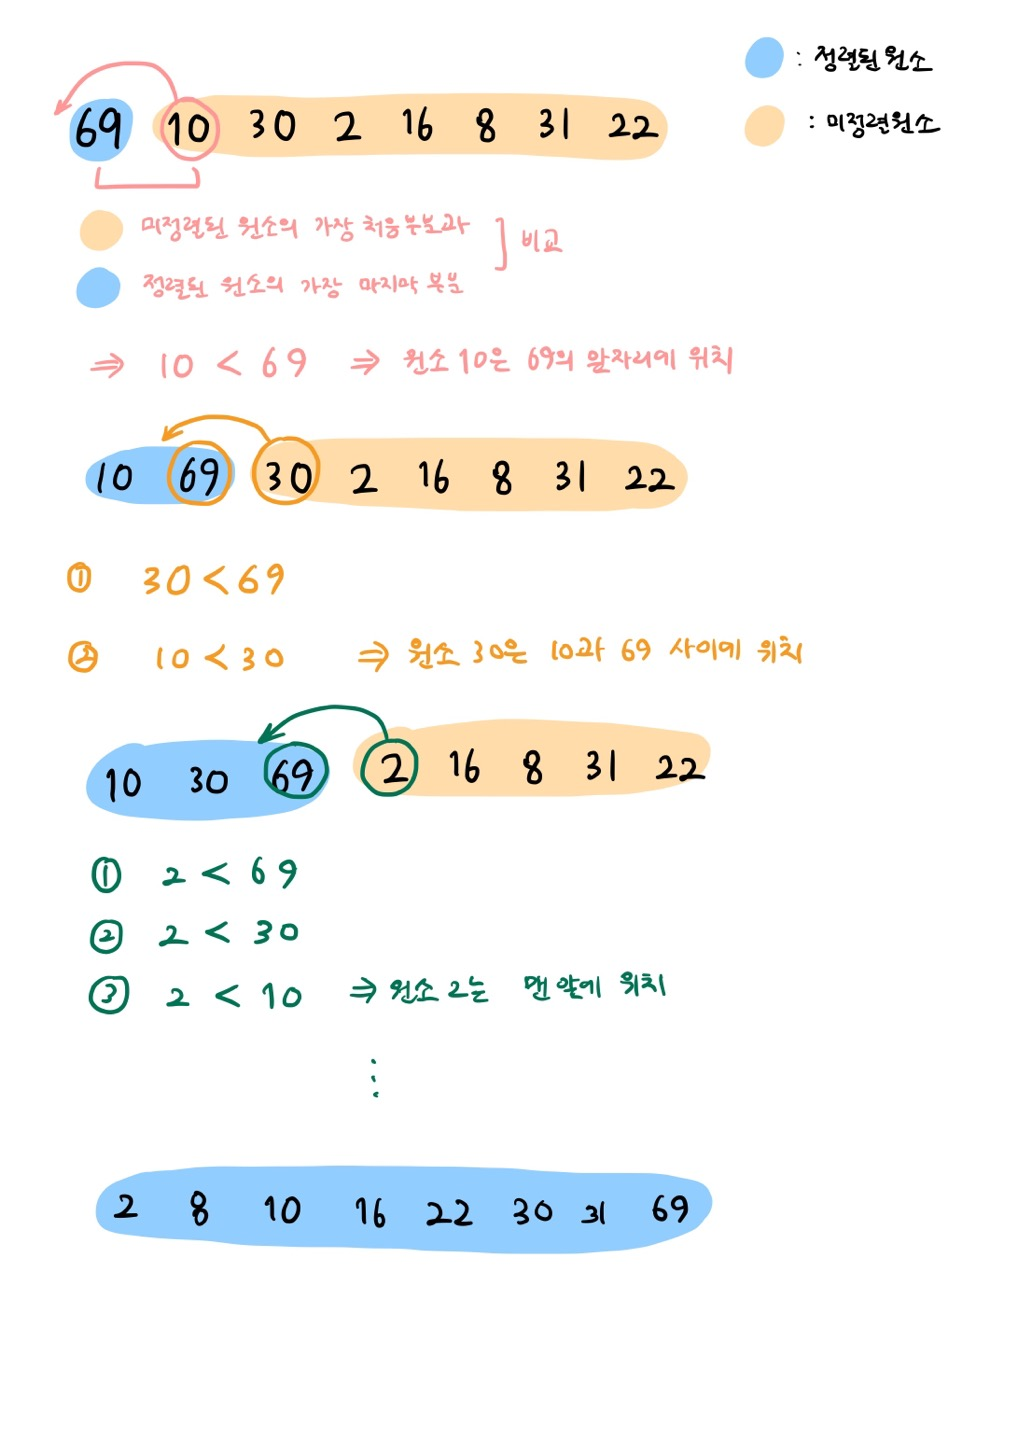 : 정렬된 원소
69 10 30 2 16 8 31 22
: 미정렬원소
미정렬된 원소의 가장 처음부분과
] 비교
정렬된 원소의 가장 마지막 부분
⇒ 10 < 69 ⇒ 원소 10은 69의 앞자리에 위치
10 69 30 2 16 8 31 22
① 30 < 69
② 10 < 30 ⇒ 원소 30은 10과 69 사이에 위치
10 30 69 2 16 8 31 22
① 2 < 69
② 2 < 30
③ 2 < 10 ⇒ 원소 2는 맨 앞에 위치
⋮
2 8 10 16 22 30 31 69